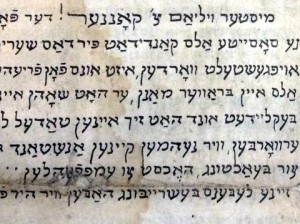 מיסטער וויליאם צ' קאננער! דער פֿאָ
נע סאסייטע אלס קאנדידאט פיר דאס שערי
אויפגעשטעלט ווארדען, איזט אונס פֿאָן פריעה
אלס איין בראווער מאַן, ער האט שאהן איי
בעקליידעט אונד האט זיך איינען טאדעל ל
ערווארבען, וויר נעהמען קיינען אנשטאנד
צור בעאכטונג, האכסט צו עמפֿפעהלען
זיינע לעבענס בעשרייבונג האבען וויר היר